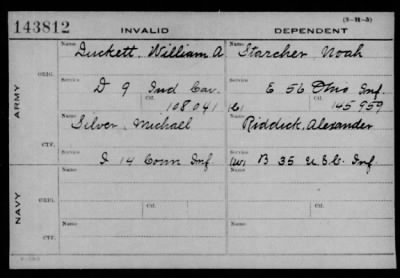 143812 INVALID DEPENDENT (3-21-5)
Name Name
Duckett, William A Starcher, Noah
ORIG. Service Service
D 9 Ind Cav. E 56 Ohio Inf.
Ctf. Ctf.
108041 145959
ARMY
Name Name
Silver, Michael Riddick, Alexander
CTF. Service Service
I 14 Conn Inf. (W) B 35 U.S.C. Inf.
Name Name
NAVY
ORIG. Ctf. Ctf.
Service Service
Name Name
CTF. Service Service